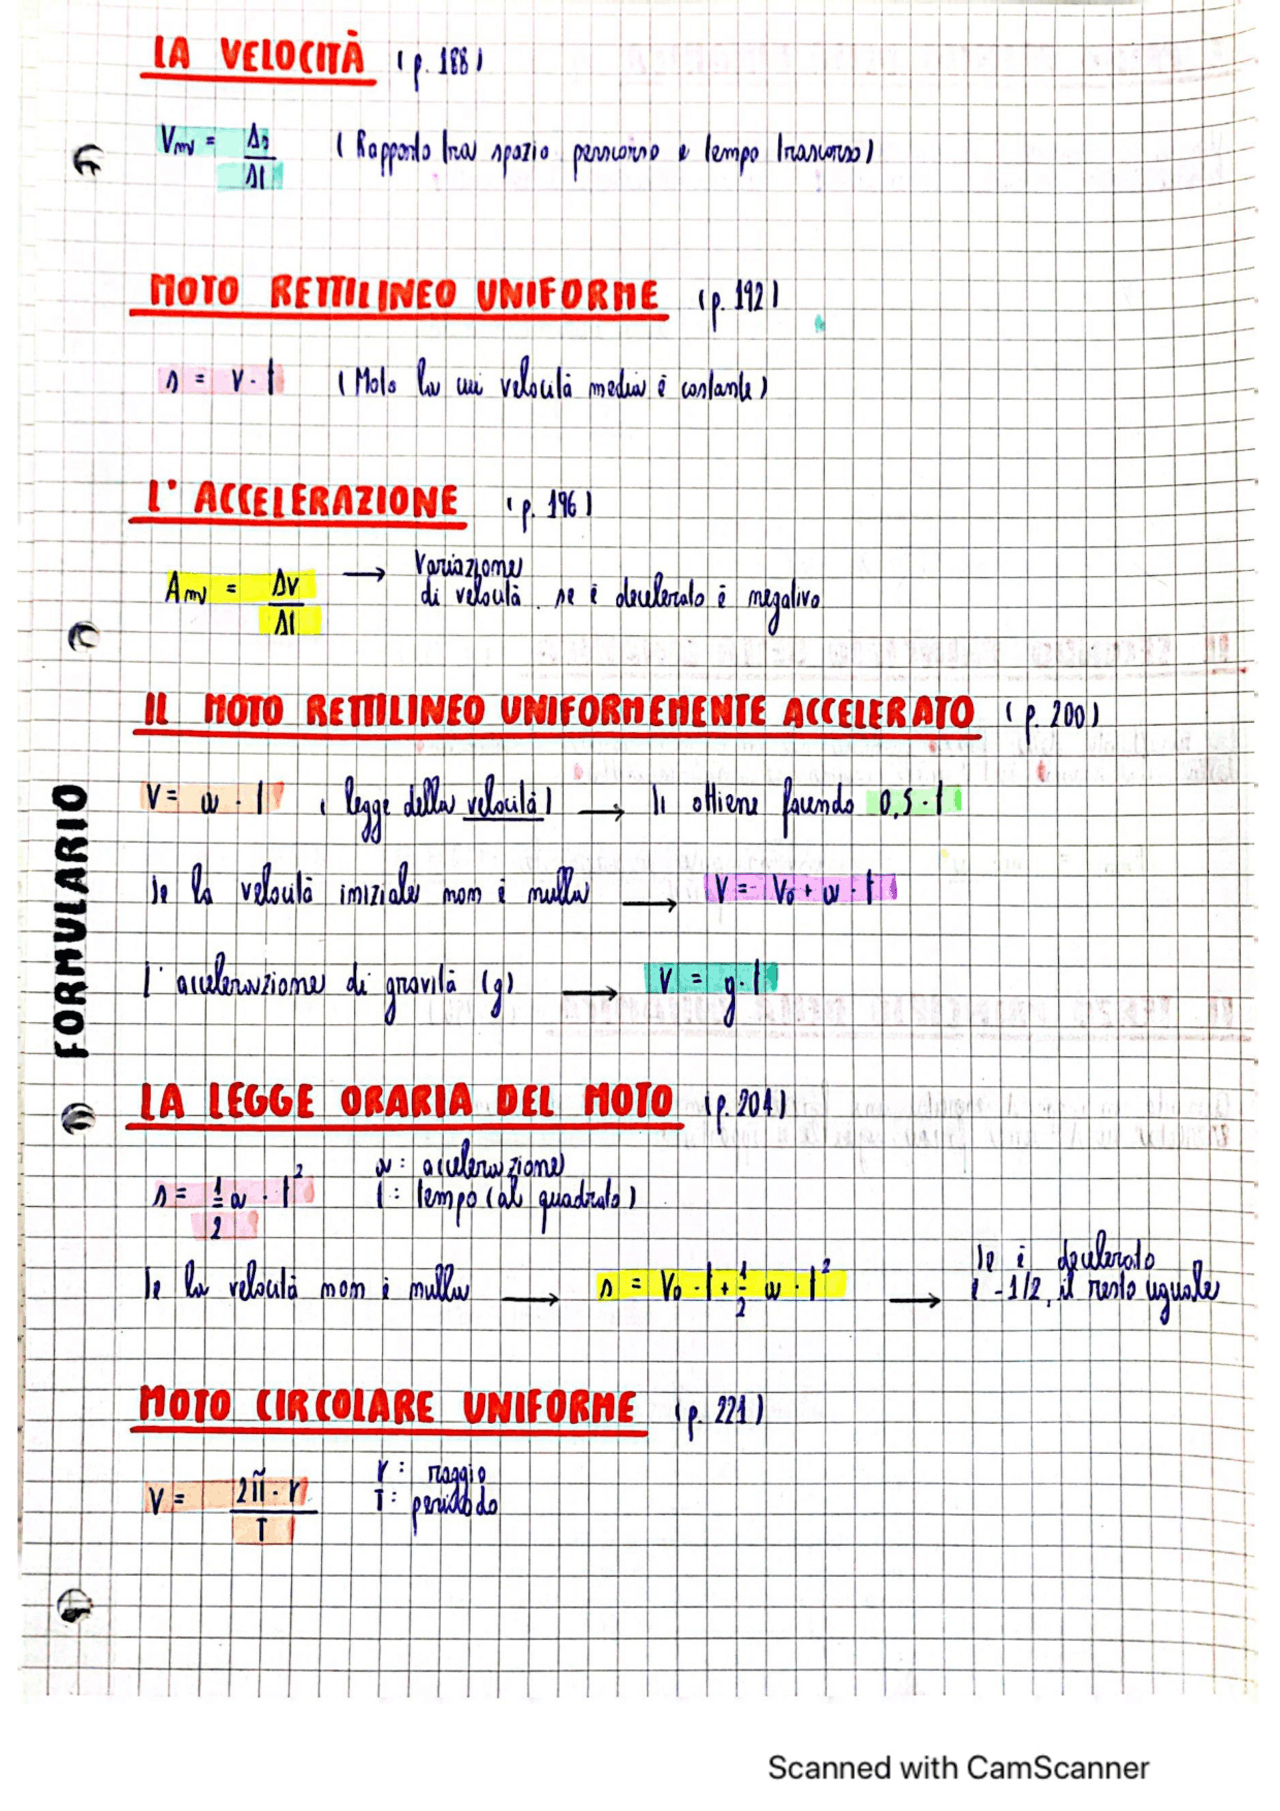 LA VELOCITÀ (p. 188)
Vm = Δs / Δt (Rapporto tra spazio percorso e tempo trascorso)
MOTO RETTILINEO UNIFORME (p. 192)
s = v · t (Moto la cui velocità media è costante)
L' ACCELERAZIONE (p. 196)
Am = Δv / Δt → Variazione
di velocità. se è decelerato è negativo
IL MOTO RETTILINEO UNIFORMEMENTE ACCELERATO (p. 200)
V = a · t (legge della velocità) → Si ottiene facendo 0,5 · t
Se la velocità iniziale non è nulla → V = V₀ + a · t
L' accelerazione di gravità (g) → V = g · t
FORMULARIO
LA LEGGE ORARIA DEL MOTO (p. 204)
s = 1/2 a · t² a : accelerazione
t : tempo (al quadrato)
Se la velocità non è nulla → s = V₀ · t + 1/2 a · t² → Se è decelerato
è - 1/2, il resto uguale
MOTO CIRCOLARE UNIFORME (p. 221)
V = 2π · r / T r : raggio
T : periodo
Scanned with CamScanner